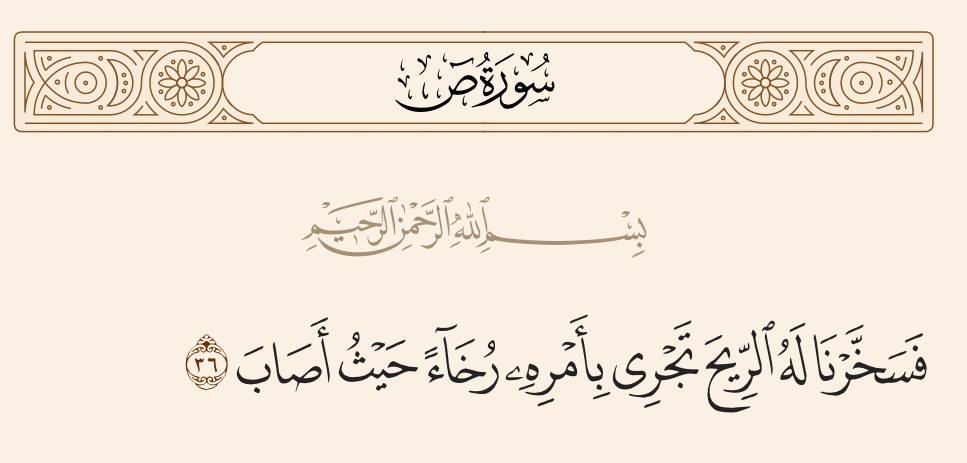 سُورَةُ صٓ
بِسْمِ ٱللَّهِ ٱلرَّحْمَٰنِ ٱلرَّحِيمِ
فَسَخَّرْنَا لَهُ ٱلرِّيحَ تَجْرِى بِأَمْرِهِۦ رُخَآءً حَيْثُ أَصَابَ ٣٦